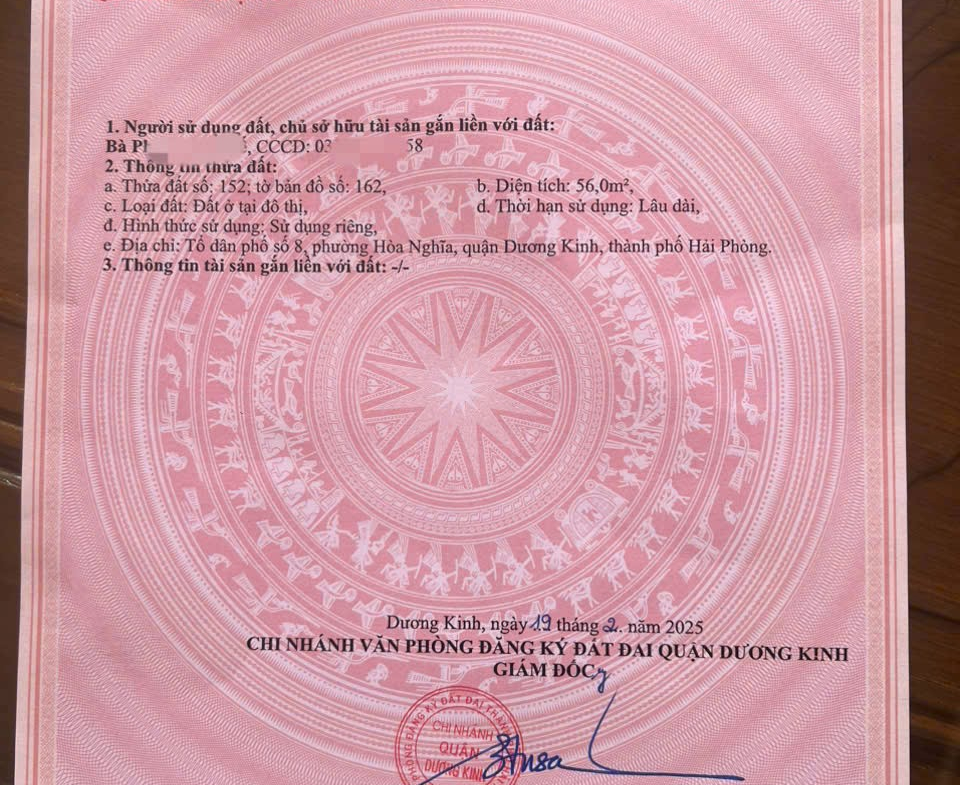 1. Người sử dụng đất, chủ sở hữu tài sản gắn liền với đất:
Bà , CCCD: 03 58
2. Thông tin thửa đất:
a. Thửa đất số: 152; tờ bản đồ số: 162, b. Diện tích: 56,0m²,
c. Loại đất: Đất ở tại đô thị, d. Thời hạn sử dụng: Lâu dài,
đ. Hình thức sử dụng: Sử dụng riêng,
e. Địa chỉ: Tổ dân phố số 8, phường Hòa Nghĩa, quận Dương Kinh, thành phố Hải Phòng.
3. Thông tin tài sản gắn liền với đất: -/-
Dương Kinh, ngày 19 tháng 2. năm 2025
CHI NHÁNH VĂN PHÒNG ĐĂNG KÝ ĐẤT ĐAI QUẬN DƯƠNG KINH
GIÁM ĐỐC
PHÒNG ĐĂNG KÝ ĐẤT ĐAI THÀNH
CHI NHÁNH
QUẬN
DƯƠNG KINH